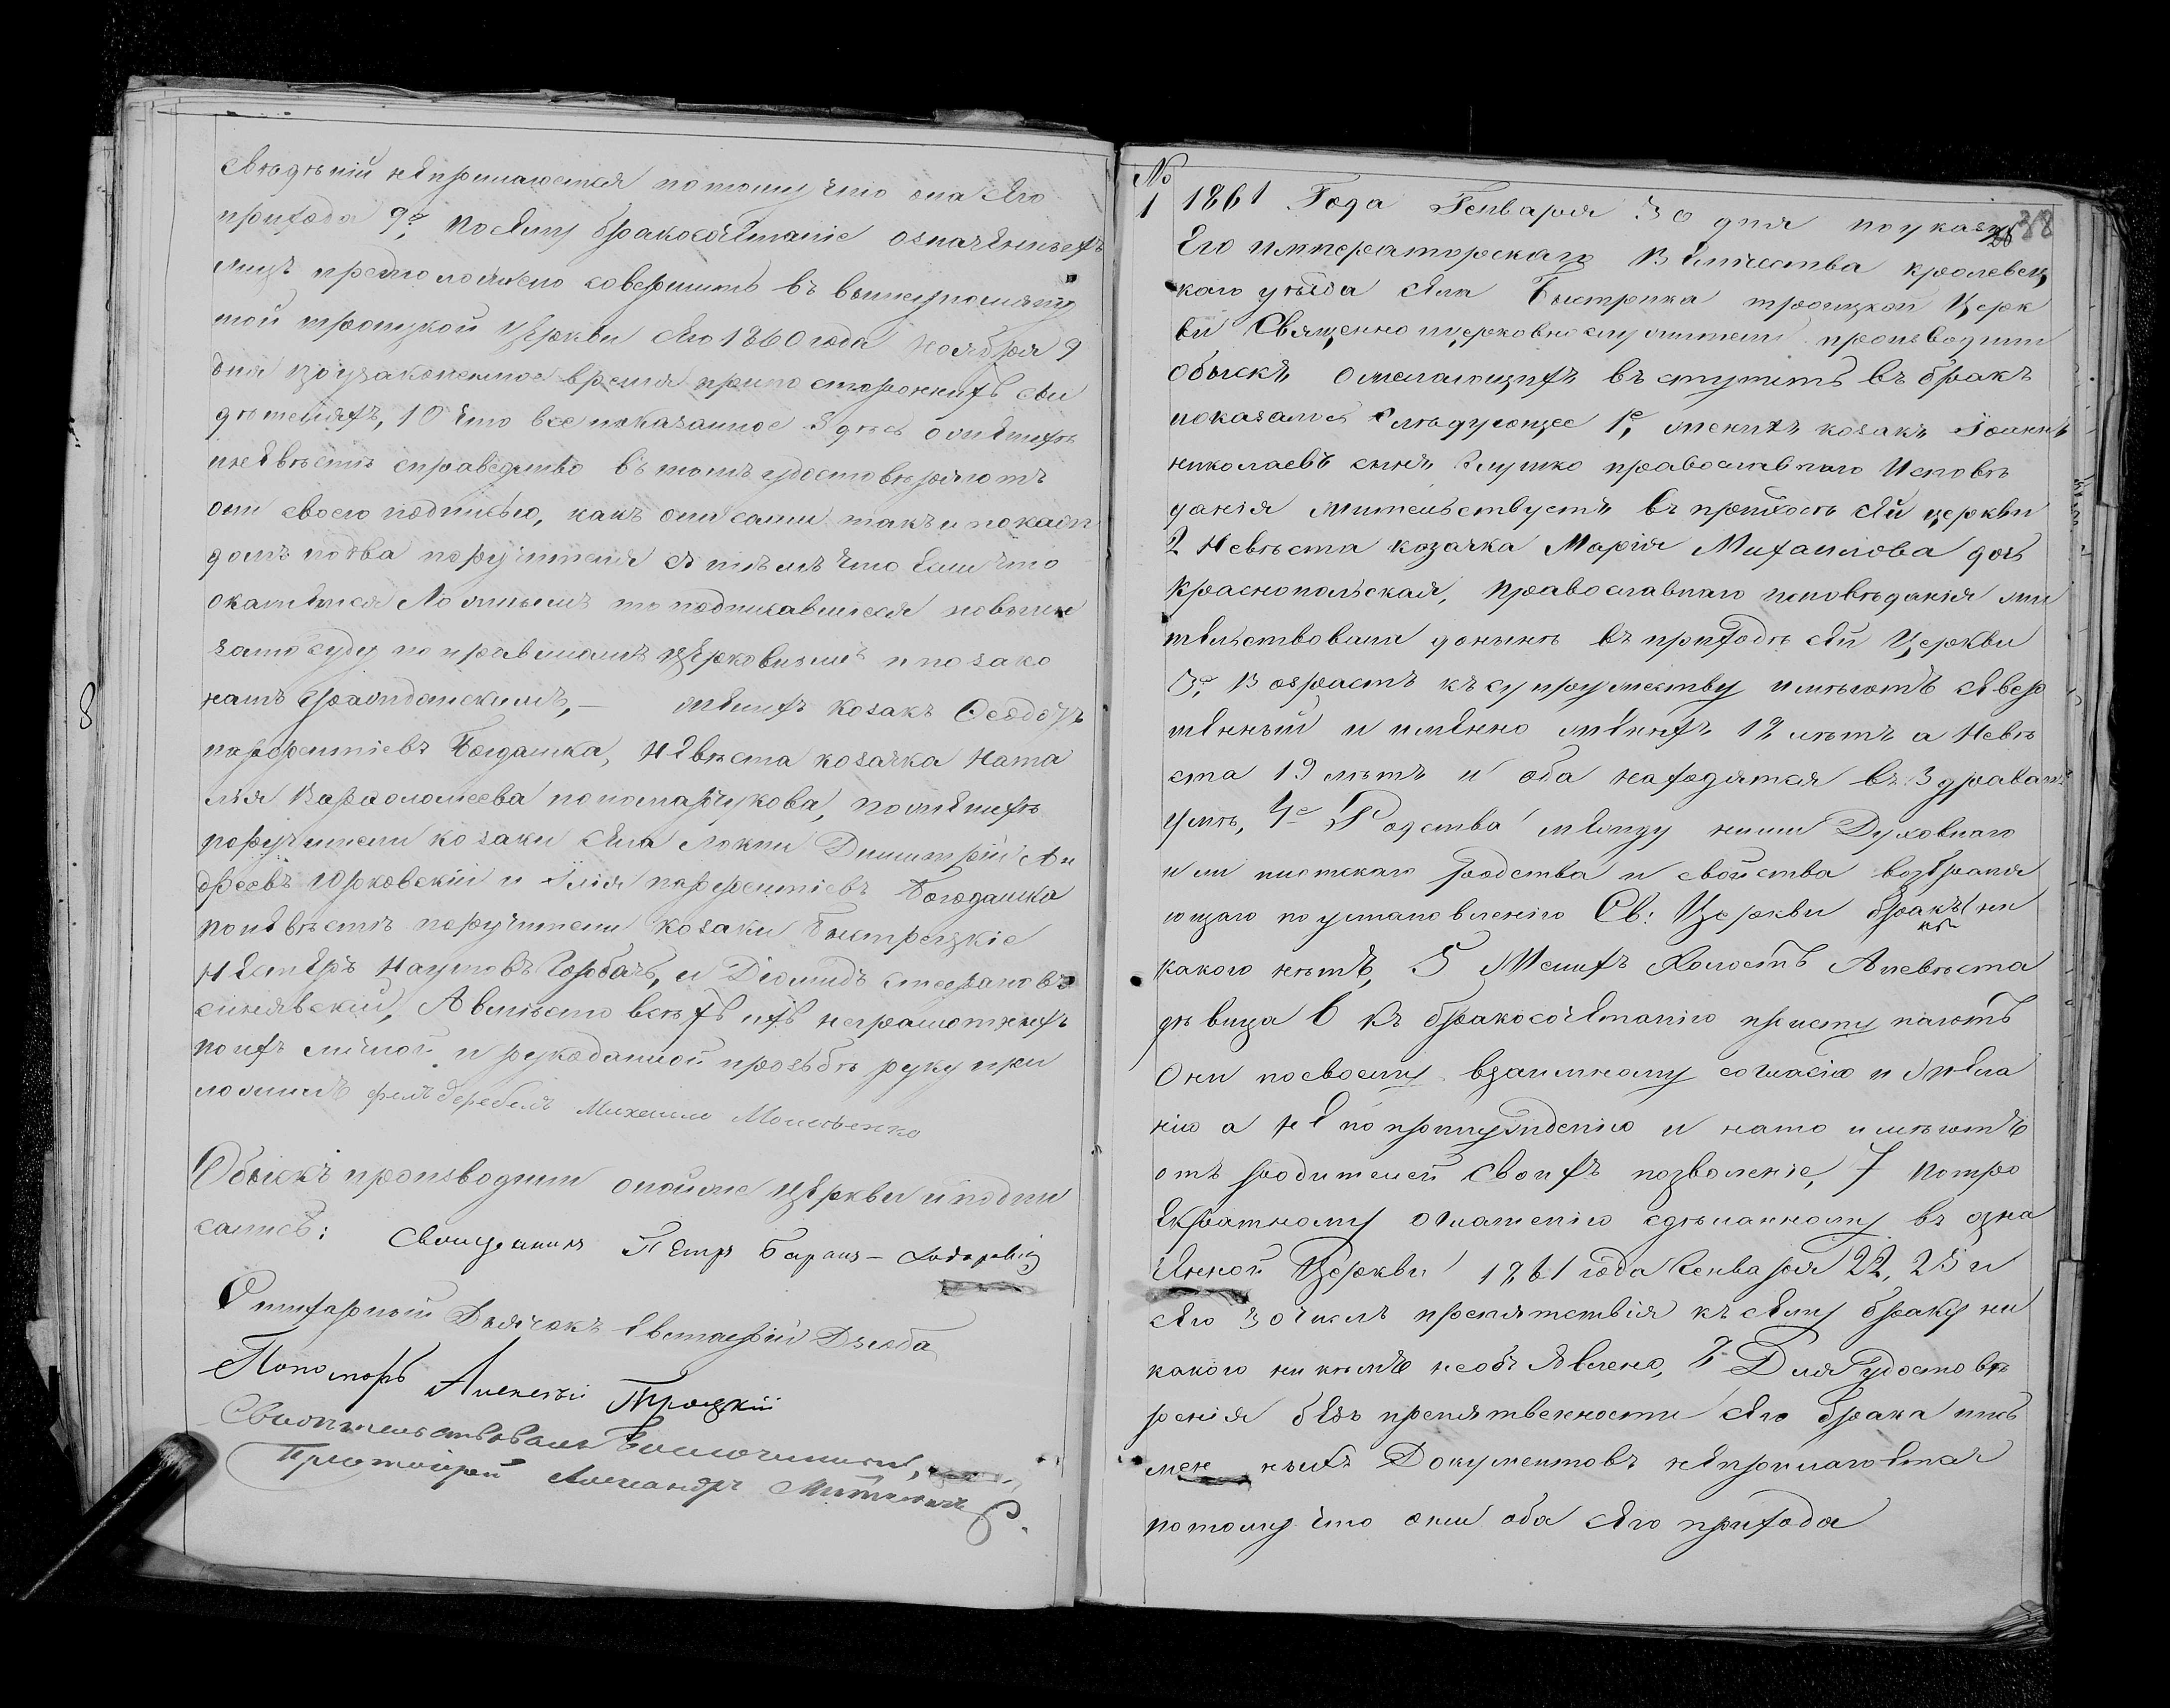 свѣдѣній неприлагается потому что она сего
прихода 9е, Посему бракосочетаніе означенныхъ
лицъ предположено совершить въ вышеупомяну
той троицкой Церкви сего 1860 года Ноября 9
дня въ узаконенное время при постороннихъ сви
дѣтеляхъ, 10 Что все показанное здѣсь о женихѣ
и невѣстѣ справедливо въ томъ удостовѣряютъ
они своею подписью, какъ они сами такъ и покаж
домъ по два поручителя съ тѣмъ что если что
окажется ложнымъ то подписавшіеся повинн
зато суду по правиламъ Церковнымъ и позако
намъ гражданскимъ,— женихъ козакъ Ѳеодоръ
парѳентіевъ Богдашка, Невѣста козачка Ната
лія Варѳоломеева пономарчукова, по женихѣ
поручители козаки села локни Димитрій Ан
дреевъ Юрковскій и Илія парѳентіевъ Богодашка
по невѣстѣ поручители козаки быстрецкіе
Несторъ Наумовъ Горбачь, и Діомидъ Стефановъ
синявскій, А вмѣсто всѣхъ ихъ неграмотныхъ
по ихъ личной и рукоданной прозьбѣ руку при
ложилъ фелдфебель Михаилъ Моисѣенко
Обыскъ производили оной же церкви и подпи
сались: Священникъ Петръ Баранъ-
Ѳ Дьячокъ Евстафій Дзюба
Пономарь Алексѣй Троцкій
Свидѣтельствовалъ Благочинный,
Протоіерей Александръ
№
1 1861 Года Генваря 30 дня поуказу 38
Его императорскаго Величества кролевец
каго уѣзда села Быстрика троицкой Церк
ви Священно и церковно служители производили
обыскъ о желающихъ въступить въ бракъ
показалось слѣдующее 1е, женихъ козакъ Іоаннъ
николаевъ сынъ Глушко православнаго Исповѣ
данія жительствуетъ въ приходѣ сей церкви
2 Невѣста козачка Марія Михаилова дочь
Краснопольская, православнаго исповѣданія жи
тельствовала донынѣ въ приходѣ сей Церкви
3е, Возрастъ къ супружеству имѣютъ совер
шенный и именно женихъ 18 лѣтъ а Невѣ
ста 19 лѣтъ и оба находятся въ здравомъ
умѣ, 4е Родства между ними Духовнаго
или плотскаго родства и свойства возбраня
ющаго поустановленію Св: Церкви бракъ ни
какого нѣтъ, 5 Женихъ Холостъ А невѣста
дѣвица 6 къ бракосочетанію приступаютъ
Они посвоему взаимному согласію и жела
нію а не по принужденію и нато имѣютъ
отъ родителей своихъ позволеніе, 7 потро
екратному оглашенію сдѣланному въ озна
ченной Церкви 1861 года Генваря 22, 25 и
сего 30 числъ препятствія къ сему браку ни
какого ни кѣмъ необъявлено, 8 Для удостовѣ
ренія безъ препятственности сего брака пись
мен ныхъ Документовъ неприлагается
потому что они оба сего прихода
8